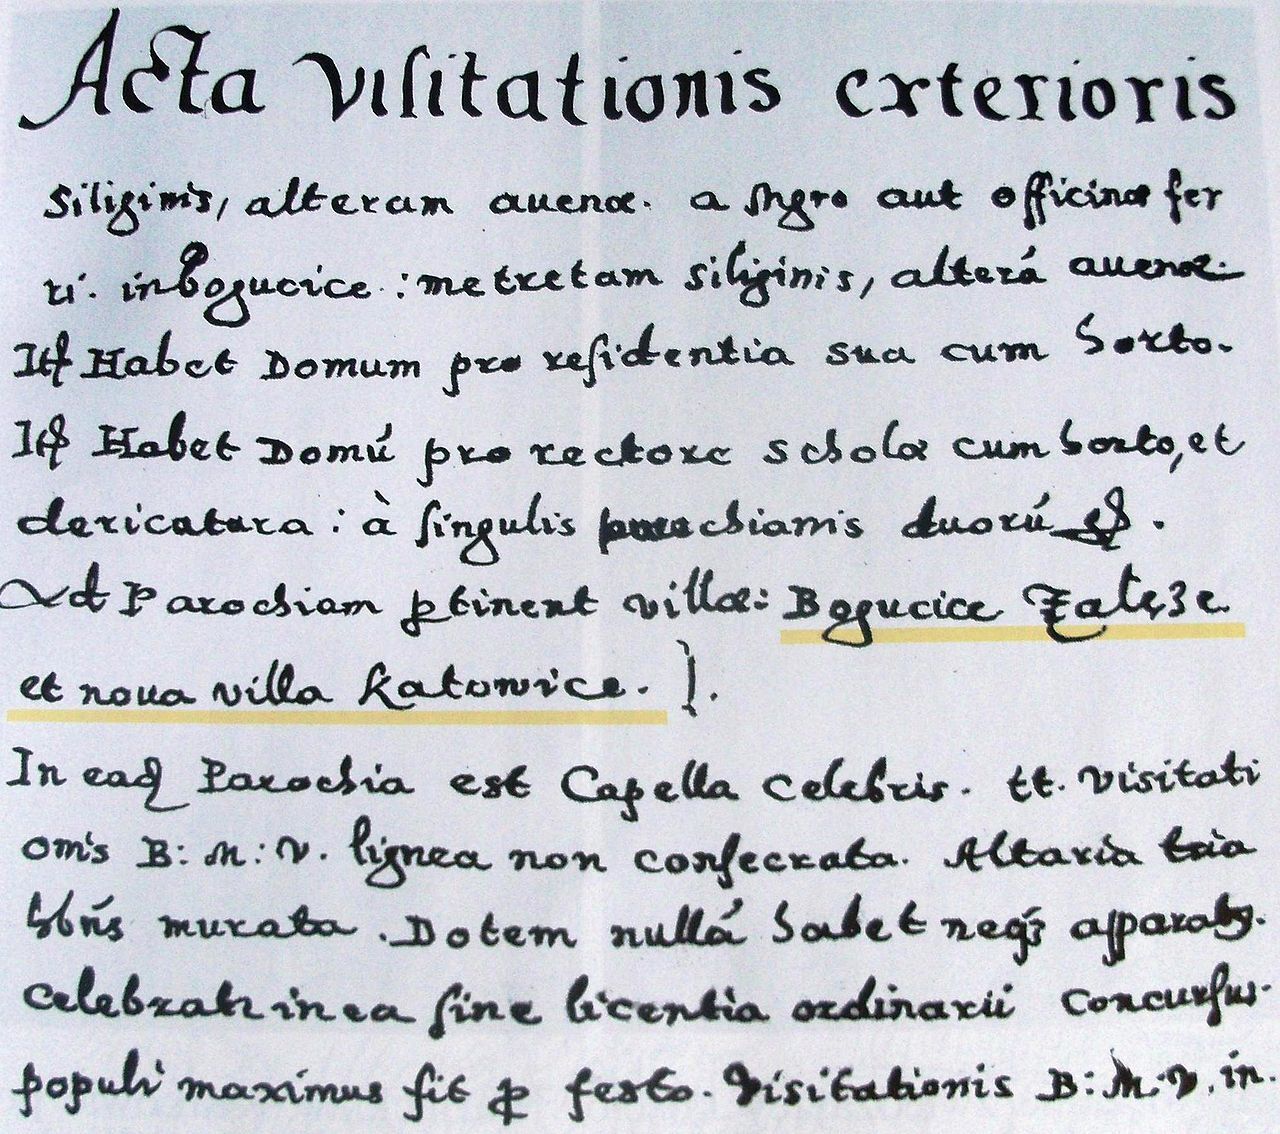 Acta visitationis exterioris
siliginis, alteram auenæ. a ſingro aut officinæ fer
ri. in Bogucice : metretam siliginis, alterá auenæ.
Itt Habet Domum pro reſidentia sua cum horto.
Itt Habet Domú pro rectore scholæ cum horto, et
clericatura : à ſingulis parochianis duorú
Ad Parochiam ptinent villæ: Bogucice Załęze
et noua villa Katowice. ].
In eadē Parochia est Capella celebris. tt. visitati
onis B: M: V. lignea non conſecrata. Altaria tria
hbńs murata. Dotem nullá habet neqз apparatų.
celebratr in ea ſine licentia ordinarii Concurſus.
populi maximus fit p festo. Visitationis B: M: V. in.